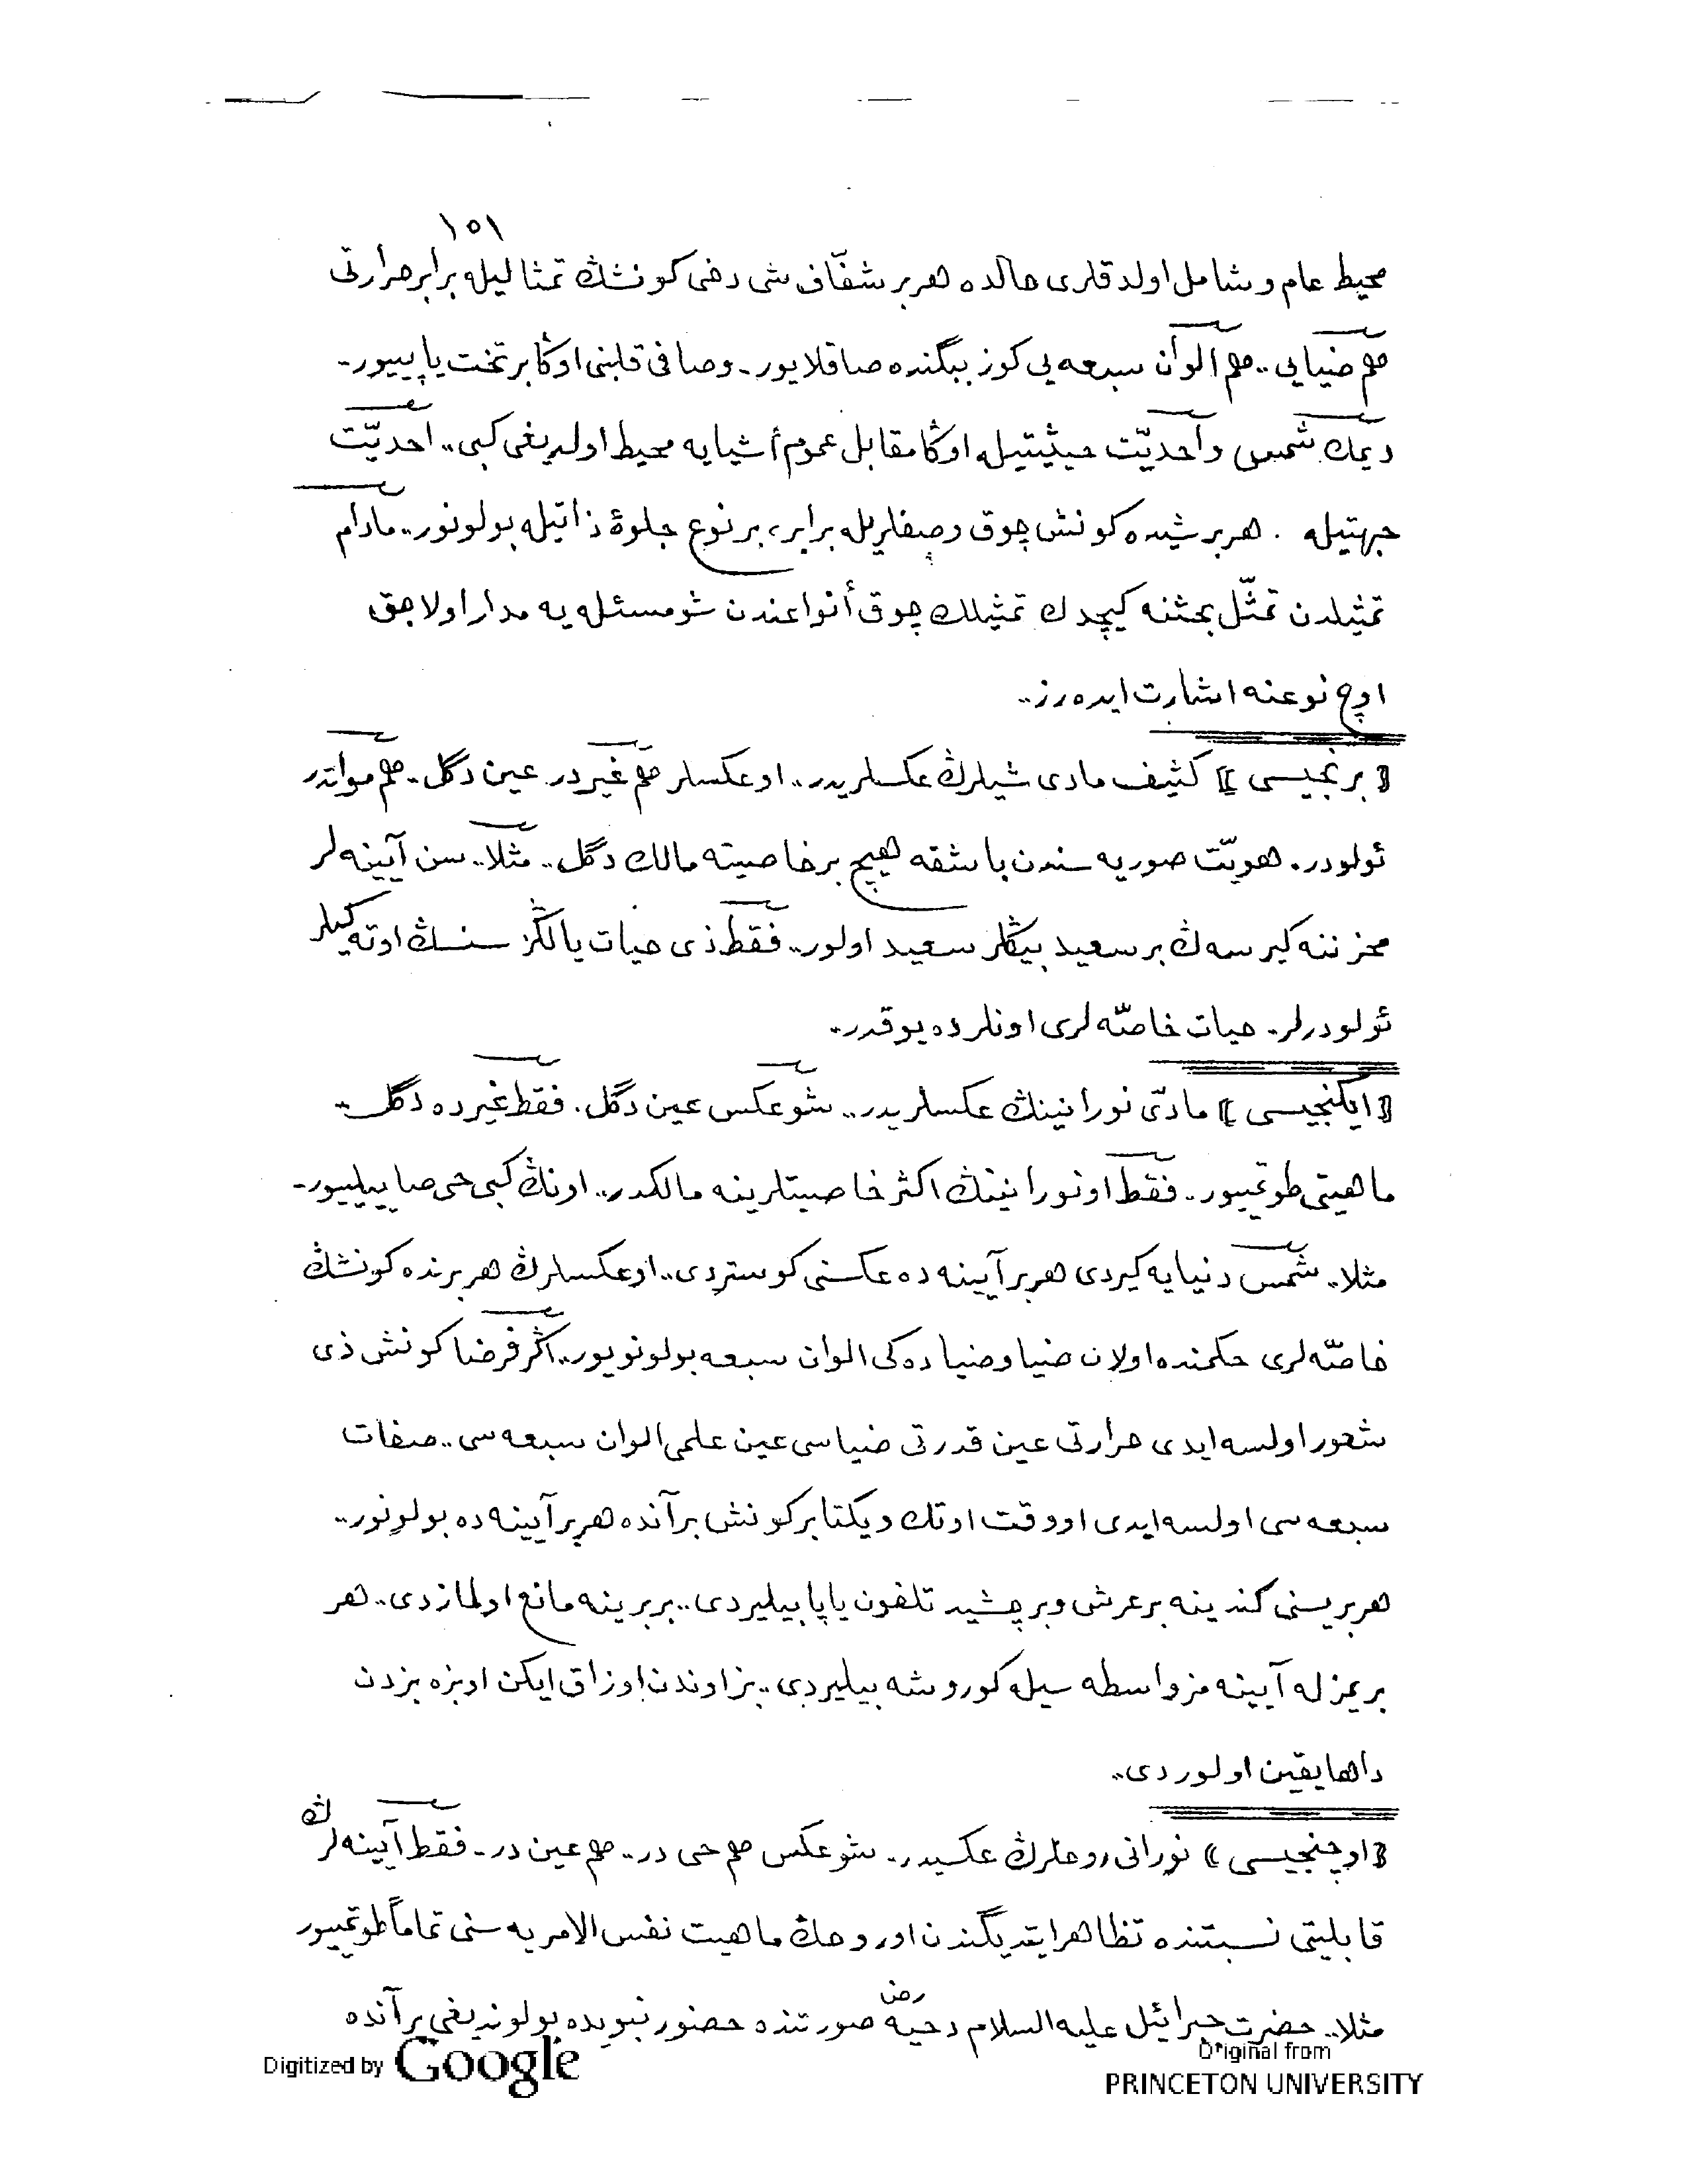 ١٥١
محیط عام و شامل اولدقلری حالده هر بر شفّاف شی دخی كونشڭ تمثالیله برابر حرارتی
هم ضیایی.. هم ألوان سبعه یی كوز ببگنده صاقلایور- وصافی قلبنی اوڭا بر تخت یاپییور-
دیمك شمس وأحدیّت حیثیتیله اوڭا مقابل عموم أشیایه محیط اولدیغی كبی.. احدیّت
جهتیله . هر بر شیده كونش چوق وصفلریله برابر، بر نوع جلوۀ ذاتیله بولونور.. مادام
تمثیلدن تمثّل بحثنه كیچدك تمثیلك چوق أنواعندن شو مسئله یه مدار اولاجق
اوچ نوعنه اشارت ایده رز..
﴿ برنجیسی ﴾ كثیف مادی شیلرڭ عكسلریدر.. او عكسلر هم غیردر عین دگل- هم مواتدر
ئولودر. هویّت صوریه سندن باشقه هیچ بر خاصیته مالك دگل.. مثلا.. سن آیینه لر
مخزننه كیرسه ڭ بر سعید بیڭلر سعید اولور.. فقط ذی حیات یالڭز سنسڭ اوته كیلر
ئولودرلر- حیات خاصّه لری اونلرده یوقدر-
﴿ ایكنجیسی ﴾ مادّی نورانینڭ عكسلریدر.. شو عكس عین دگل. فقط غیرده دگل-
ماهیتی طوتمییور.. فقط او نورانینڭ اكثر خاصیتلرینه مالكدر.. اونڭ كبی حی صاییلییور-
مثلا.. شمس دنیایه كیردی هر بر آیینه ده عكسنی كوستردی.. او عكسلرڭ هر برنده كونشڭ
خاصّه لری حكمنده اولان ضیا وضیاده كی الوان سبعه بولونویور.. اڭر فرضا كونش ذی
شعور اولسه ایدی حرارتی عین قدرتی ضیاسی عین علمی الوان سبعه سی.. صفات
سبعه سی اولسه ایدی او وقت او تك ویكتا بر كونش بر آنده هر بر آیینه ده بولونور..
هر بریسنی كندینه بر عرش وبر چشید تلفون یاپا بیلیردی.. بر برینه مانع اولمازدی.. هر
بریمزله آیینه مز واسطه سیله كوروشه بیلیردی.. بز اوندن اوزاق ایكن او بزه بزدن
داها یقین اولوردی..
﴿ اوچنجیسی ﴾ نورانی روحلرڭ عكسیدر.. شو عكس هم حی در.. هم عین در- فقط آیینه لرڭ
قابلیتی نسبتنده تظاهر ایتدیگندن او روحڭ ماهیت نفس الامریه سنی تماماً طوتمییور
مثلا.. حضرت جبرائیل علیه السلام دحیه رض صورتنده حضور نبویده بولوندیغی بر آنده
Digitized by Google
Original from
PRINCETON UNIVERSITY